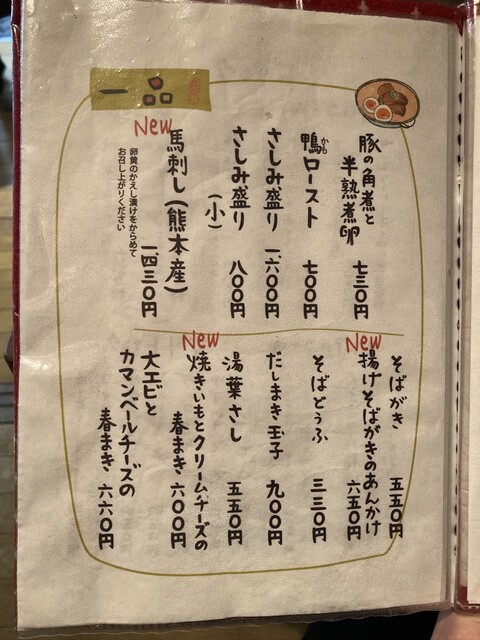 一品
豚の角煮と
半熟煮卵
七三〇円
鴨ロースト
かも
七〇〇円
さしみ盛り
一、六〇〇円
さしみ盛り
(小)
八〇〇円
New
馬刺し(熊本産)
卵黄のかえし漬けをからめて
お召し上がりください
一、四三〇円
そばがき
五五〇円
New
揚げそばがきのあんかけ
六五〇円
そばどうふ
三三〇円
だしまき玉子
九〇〇円
湯葉さし
五五〇円
New
焼きいもとクリームチーズの
春まき 六〇〇円
大エビと
カマンベールチーズの
春まき 六六〇円